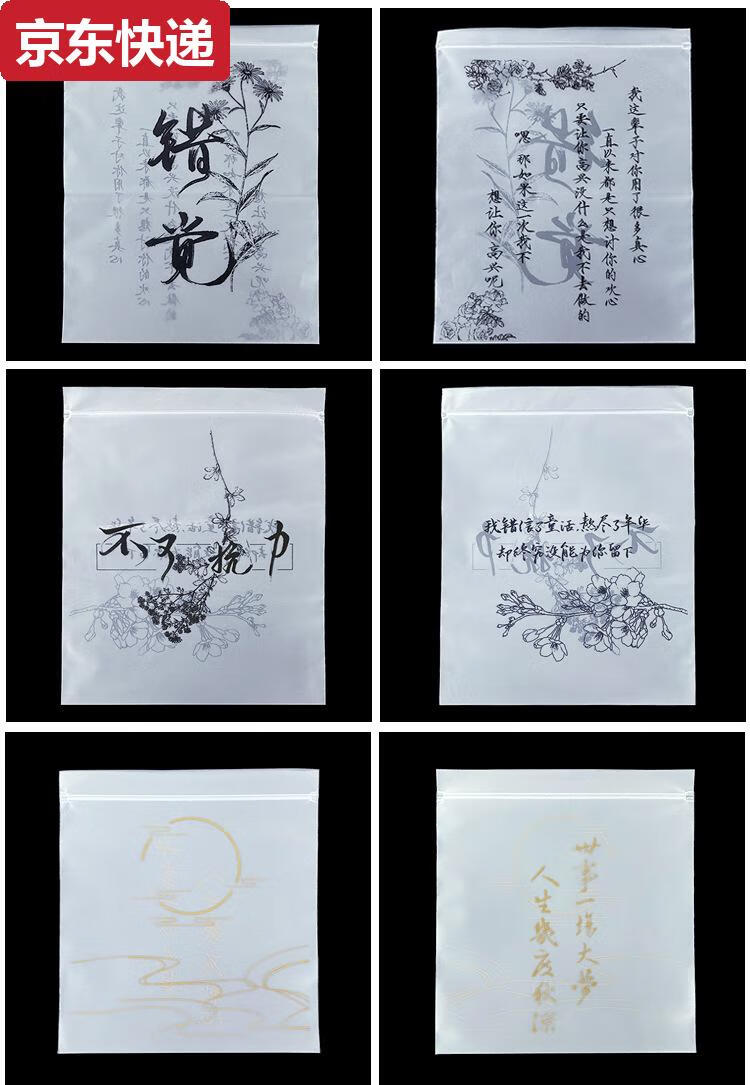 京东快递
错觉
我这辈子对你用了很多真心
一直以来都是只想讨你的欢心
只要让你高兴没什么是我不去做的
嗯 那如果这一次我不
想让你高兴呢
我错信了童话,熬尽了年华
却终究没能为你留下
世事一场大梦
人生幾度秋